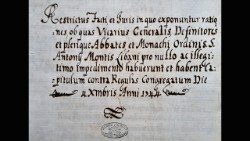 Restrictus Facti et Juris in quo exponuntur ratio-
nes ob quas Vicarius Generalis Definitores
et plerique Abbates et Monachi Ordinis S.
Antony Montis Libani pro nullo ac illegi-
timo impedimento habuerunt et habent Ca-
pitulum contra Regulas Congregatum Die
4 Xmbris Anni 1744